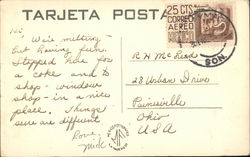 TARJETA POSTAL
25 CTS
CORREO
AEREO
MEXICO
SON.
We're melting -
but having fun.
Stopped here for
a coke and to
shop - window
shop - in a nice
place. Things
sure are different
Love,
Mick
R H McLeod
28 Urban Drive
Painesville
Ohio
USA
MF